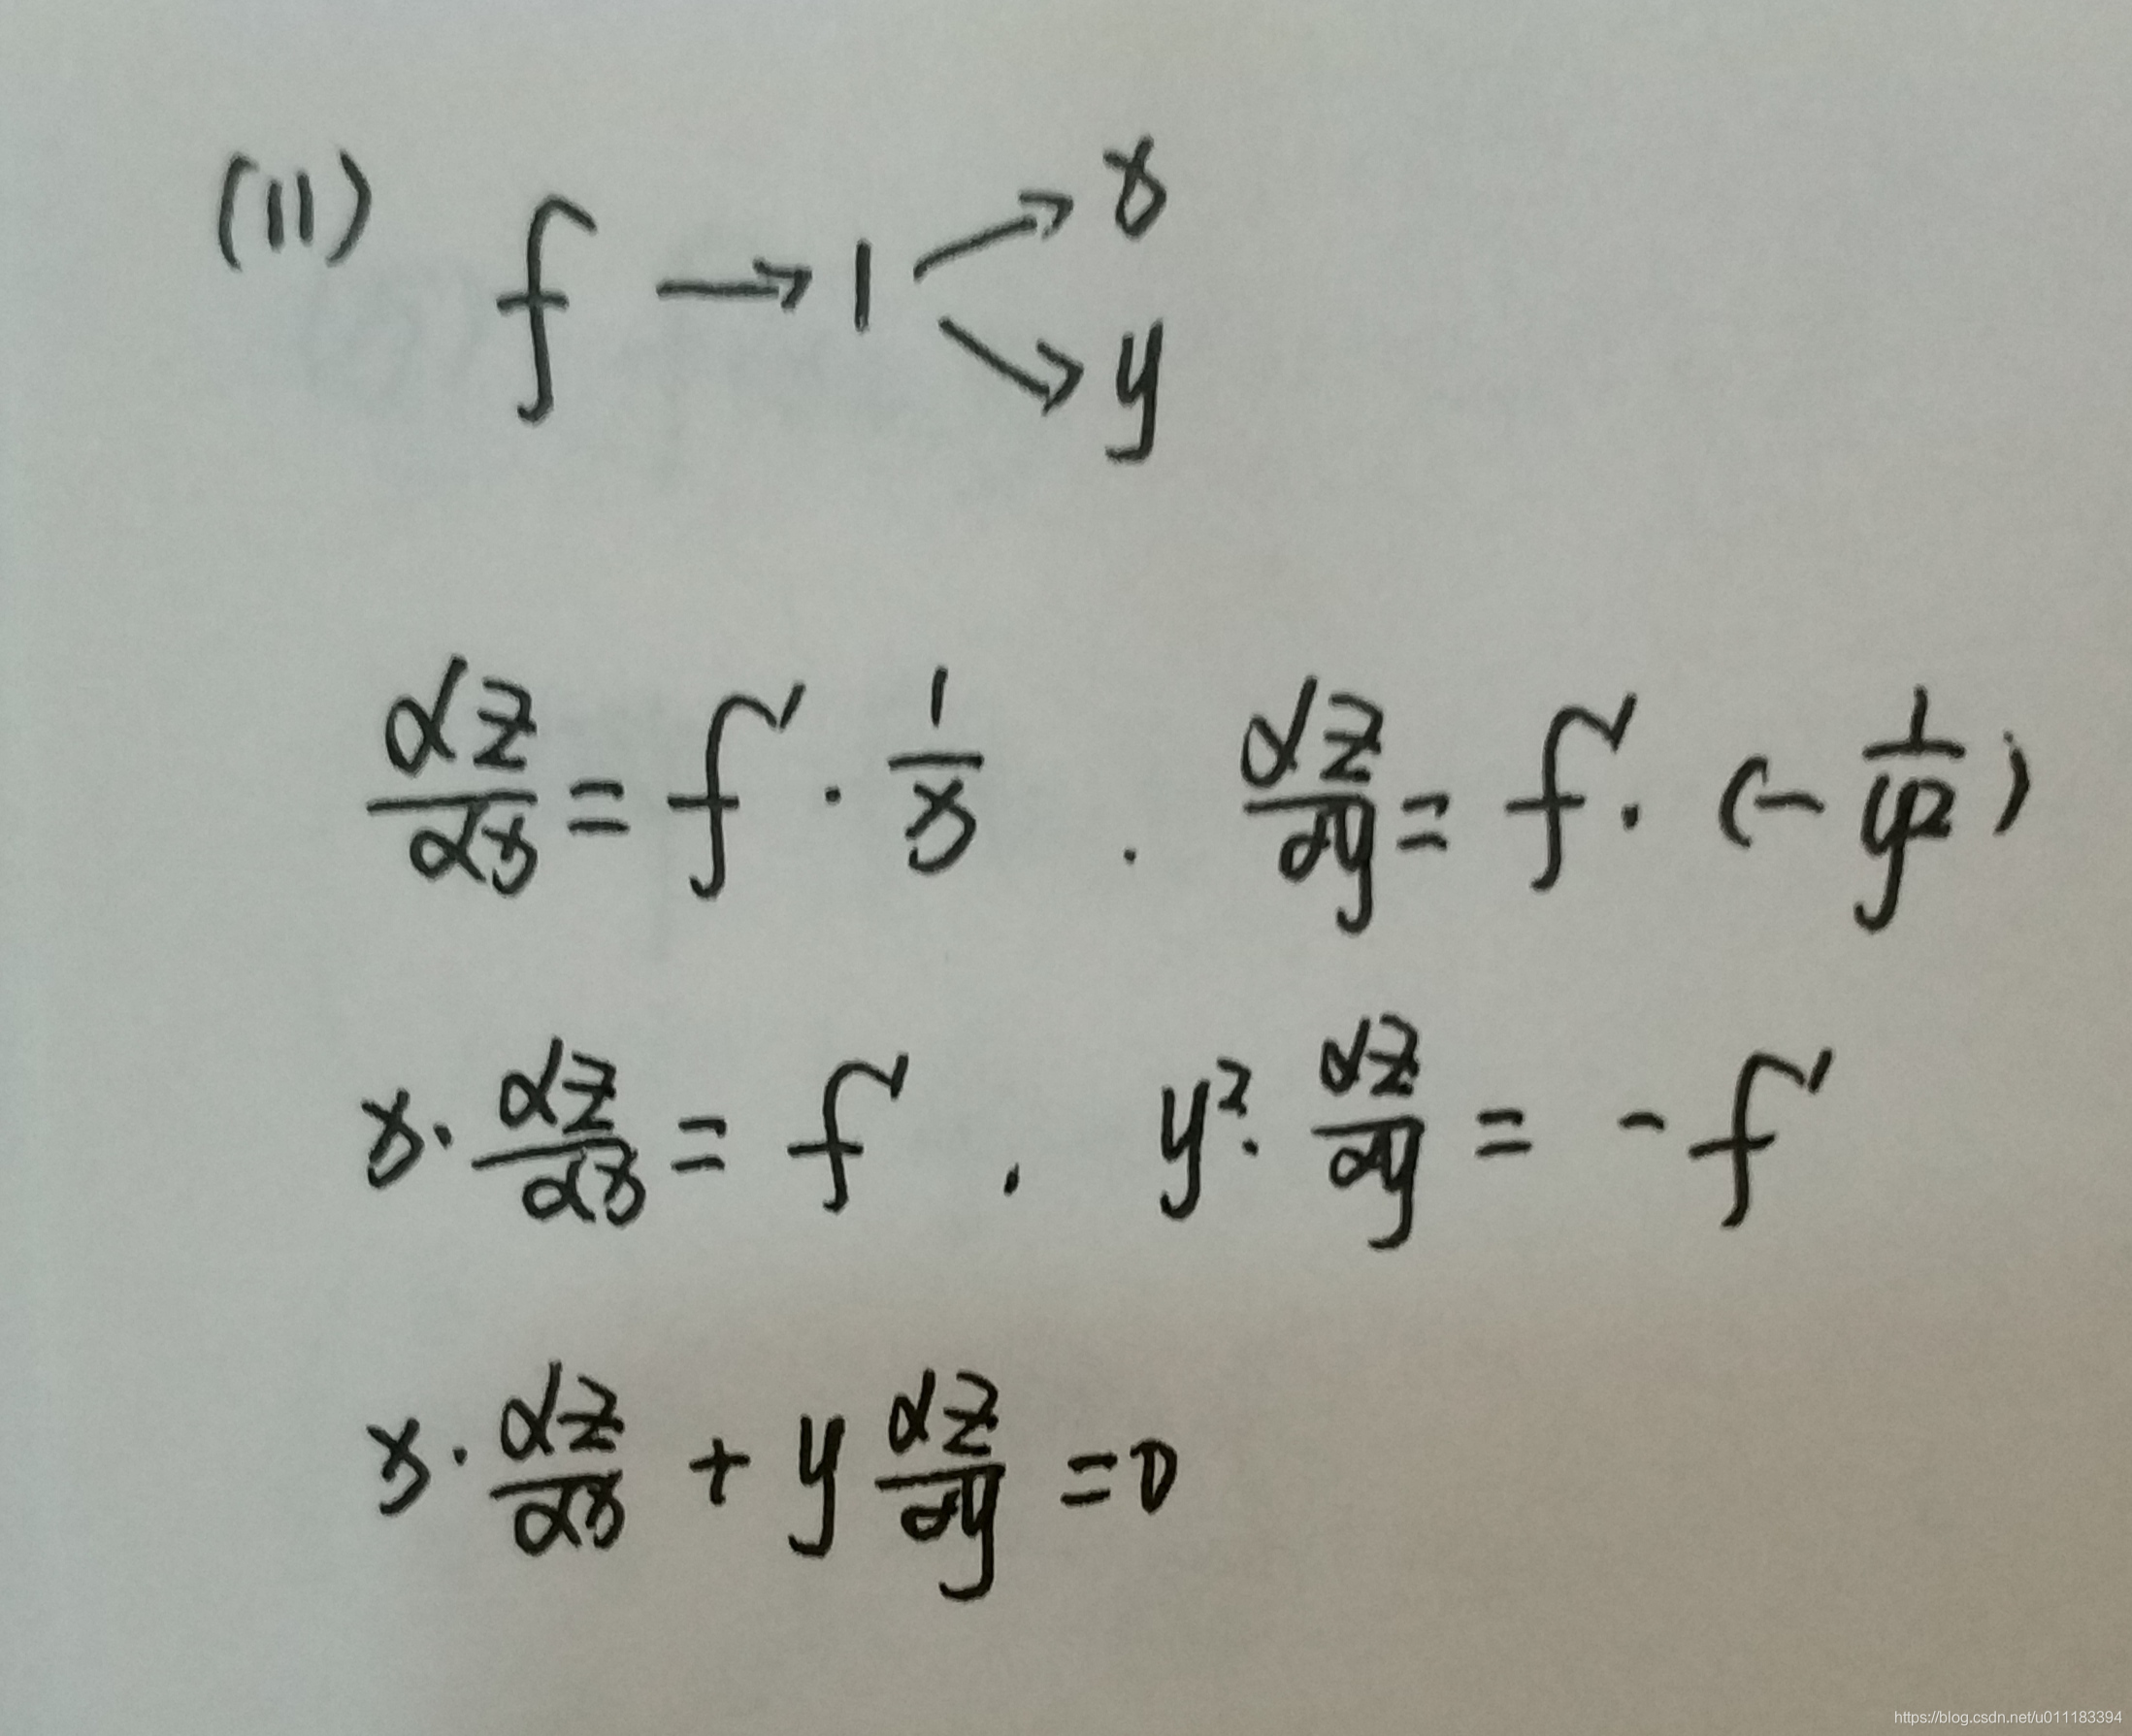 (11) f → 1 → x
→ y
dz/dx = f' · 1/x . dz/dy = f' · (- 1/y²)
x · dz/dx = f' . y² · dz/dy = - f'
x · dz/dx + y dz/dy = 0
https://blog.csdn.net/u011183394